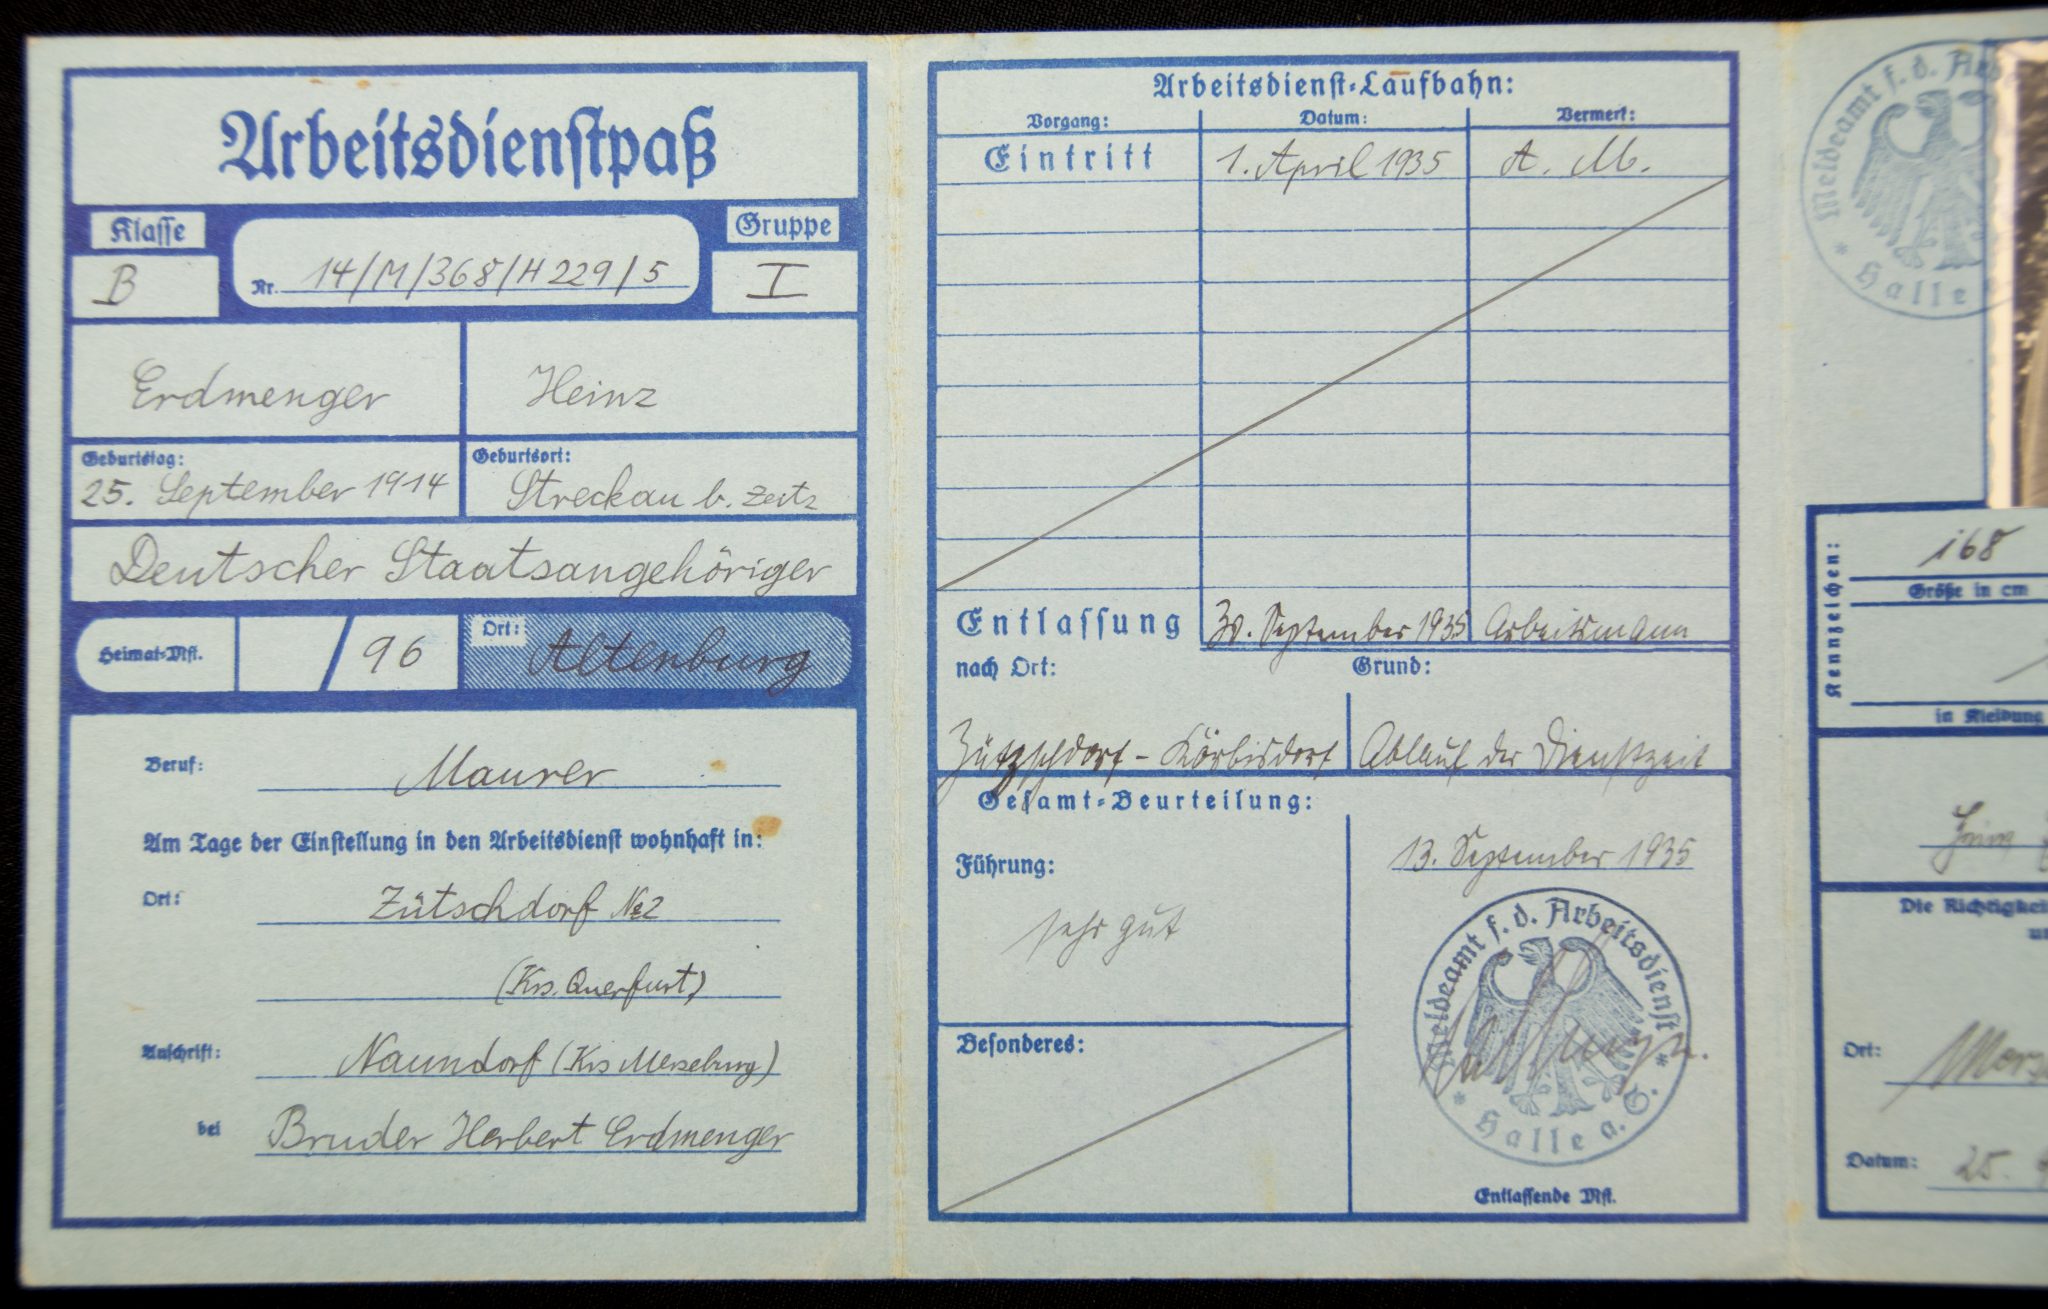 Arbeitsdienstpaß
Klasse
Gruppe
B
Nr. 14/M/368/H229/5
I
Erdmenger
Heinz
Geburtstag:
25. September 1914
Geburtsort:
Streckau b. Zeitz
Deutscher Staatsangehöriger
Heimat-Mst.
/ 96
Ort:
Altenburg
Beruf: Maurer
Am Tage der Einstellung in den Arbeitsdienst wohnhaft in:
Ort: Zütschdorf № 2
(Krs. Querfurt)
Anschrift: Naundorf (Krs Merseburg)
bei Bruder Herbert Erdmenger
Arbeitsdienst-Laufbahn:
Vorgang: Datum: Vermerk:
Eintritt 1. April 1935 A. M.
Entlassung 30. September 1935 Arbeitsmann
nach Ort: Grund:
Zützschdorf - Körbisdorf Ablauf der Dienstzeit
Gesamt-Beurteilung:
Führung:
sehr gut
Besonderes:
13. September 1935
Meldeamt f. d. Arbeitsdienst
* Halle a. S. *
Entlassende Mst.
Meldeamt f. d. Arb
* Halle
Kennzeichen:
168
Größe in cm
in Kleidung
Heinz
Die Richtigkei
Ort:
Datum: 25.